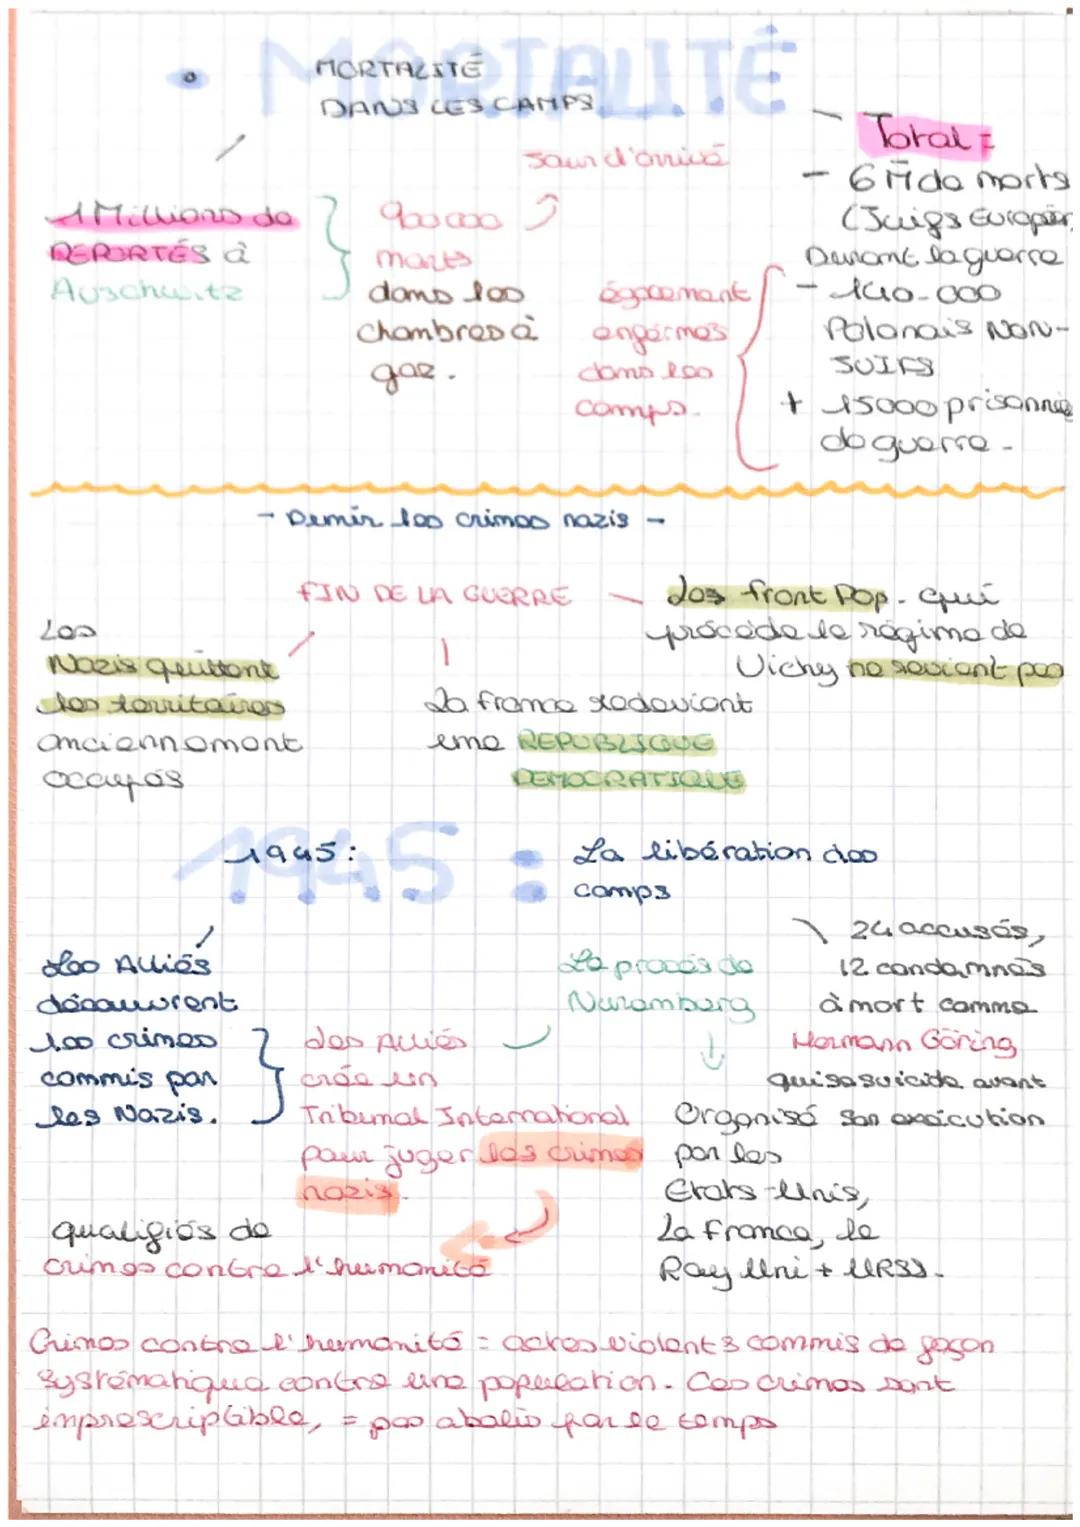 MORTALITÉ
MORTALITÉ
DANS LES CAMPS
Total =
Jour d'arrivé
- 6 M de morts
(Juifs Européen
Durant la guerre
1 Millions de
REPORTÉS à
Auschwitz
900 000
morts
dans les
chambres à
gaz.
également
enfermés
dans les
camps.
- 140.000
Polonais NON-
JUIFS
+ 15000 prisonnie
de guerre -
- Demir les crimes nazis -
FIN DE LA GUERRE
Les
Nazis quittent
les territoires
anciennement
occupés
La france redevient
une REPUBLIQUE
DEMOCRATIQUE
Les front Pop. qui
précède le régime de
Vichy ne revient pas
1945 :
1945:
La libération des
camps
Les Alliés
découvrent
les crimes
commis par
les Nazis.
des Alliés
crée un
Tribunal International
pour juger les crimes
nazis.
qualifiés de
crimes contre l'humanité
Le procès de
Nuremburg
Organisé
par les
Etats-Unis,
La france, le
Roy Uni + URSS.
24 accusés,
12 condamnés
à mort comme
Hermann Göring
qui se suicide avant
son exécution
Crimes contre l'humanité = actes violents commis de façon
systématique contre une population. Ces crimes sont
imprescriptible, = pas abolis par le temps